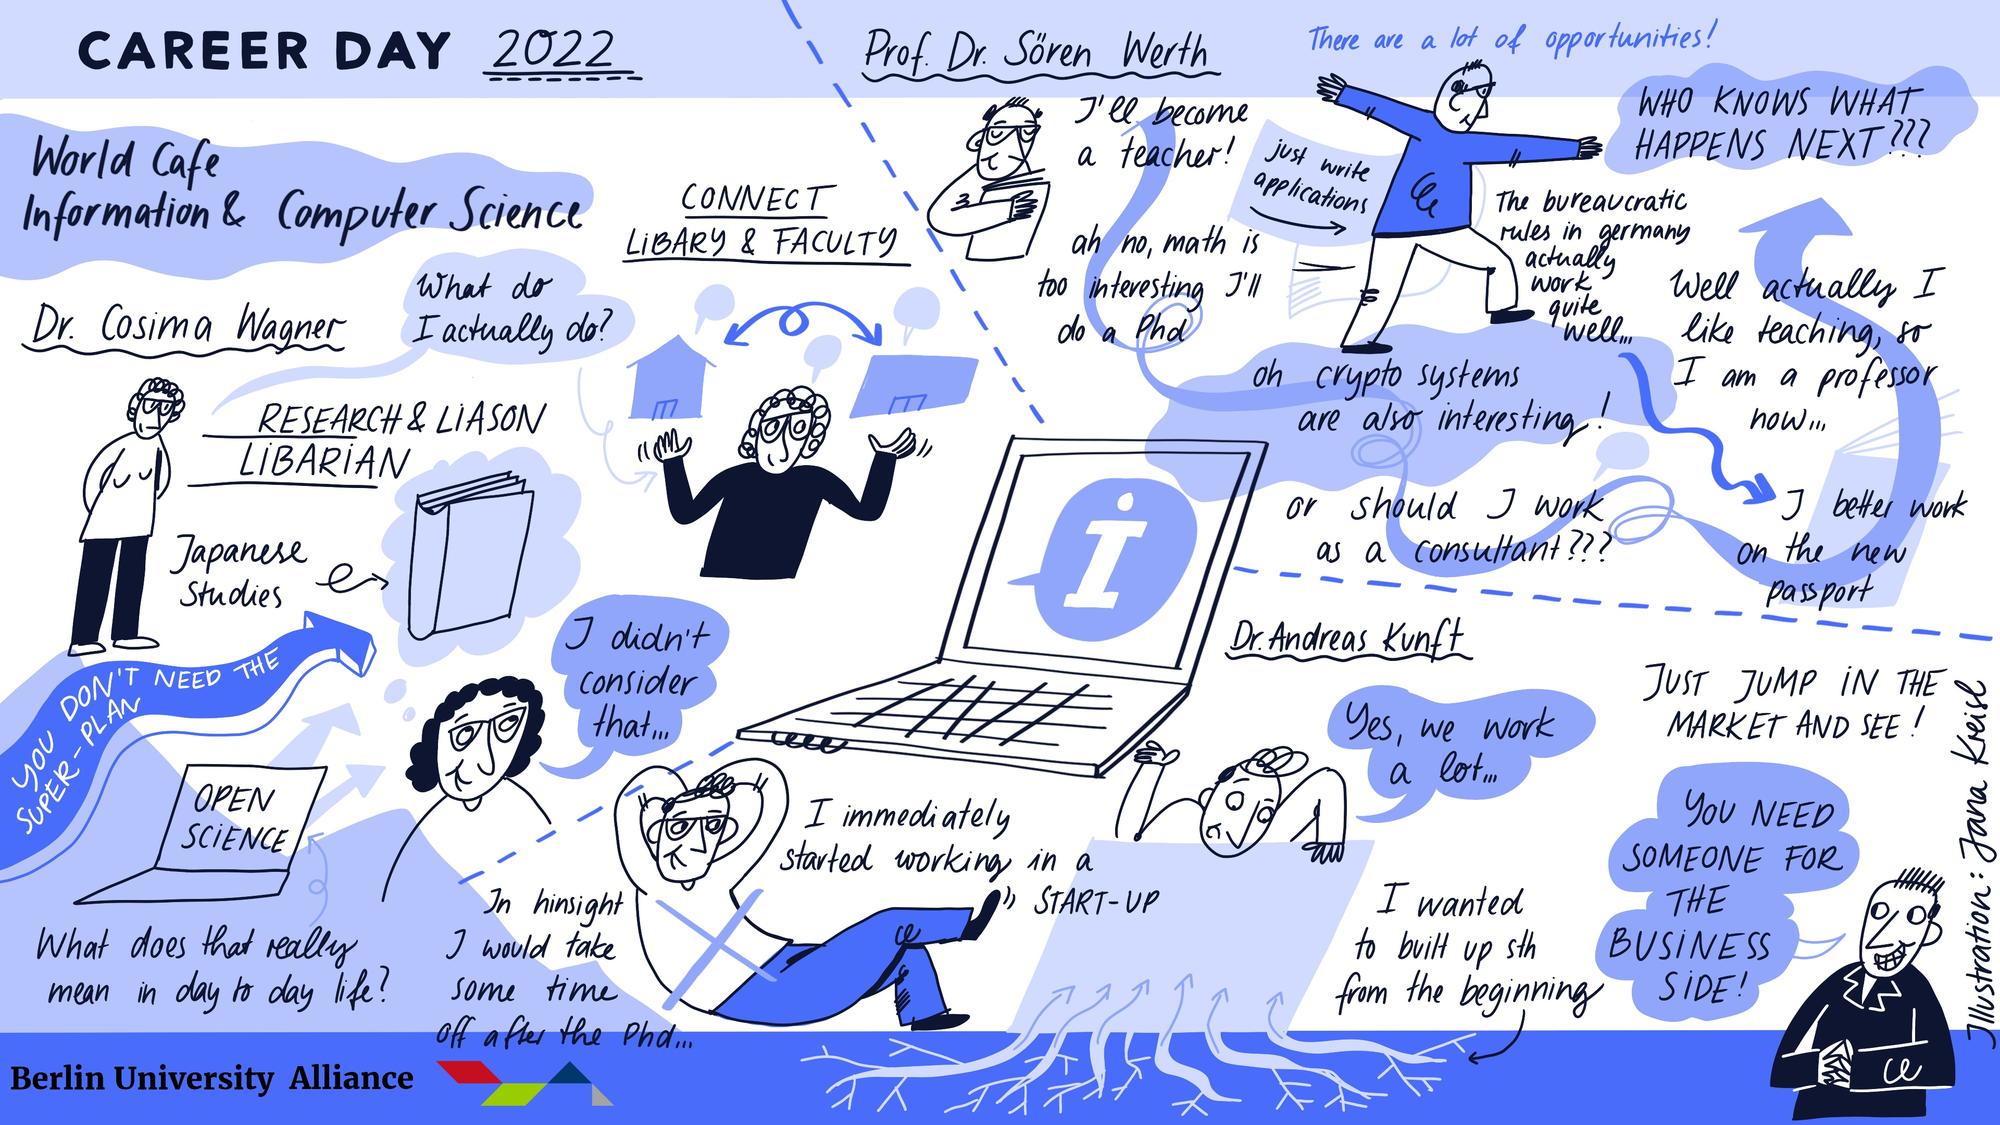 CAREER DAY 2022
World Cafe
Information & Computer Science
Dr. Cosima Wagner
What do
I actually do?
RESEARCH & LIASON
LIBARIAN
Japanese
Studies
CONNECT
LIBARY & FACULTY
YOU DON'T NEED THE
SUPER-PLAN
I didn't
consider
that...
OPEN
SCIENCE
What does that really
mean in day to day life?
Prof. Dr. Sören Werth
I'll become
a teacher!
ah no, math is
too interesting I'll
do a Phd
just write
applications
There are a lot of opportunities!
WHO KNOWS WHAT
HAPPENS NEXT???
The bureaucratic
rules in germany
actually
work
quite
well...
oh crypto systems
are also interesting!
or should I work
as a consultant???
I better work
on the new
passport
Well actually I
like teaching, so
I am a professor
now...
i
Dr. Andreas Kunft
Yes, we work
a lot...
JUST JUMP IN THE
MARKET AND SEE!
I immediately
started working in a
START-UP
In hinsight
I would take
some time
off after the Phd...
I wanted
to built up sth
from the beginning
YOU NEED
SOMEONE FOR
THE
BUSINESS
SIDE!
Illustration: Jana Kreisl
Berlin University Alliance